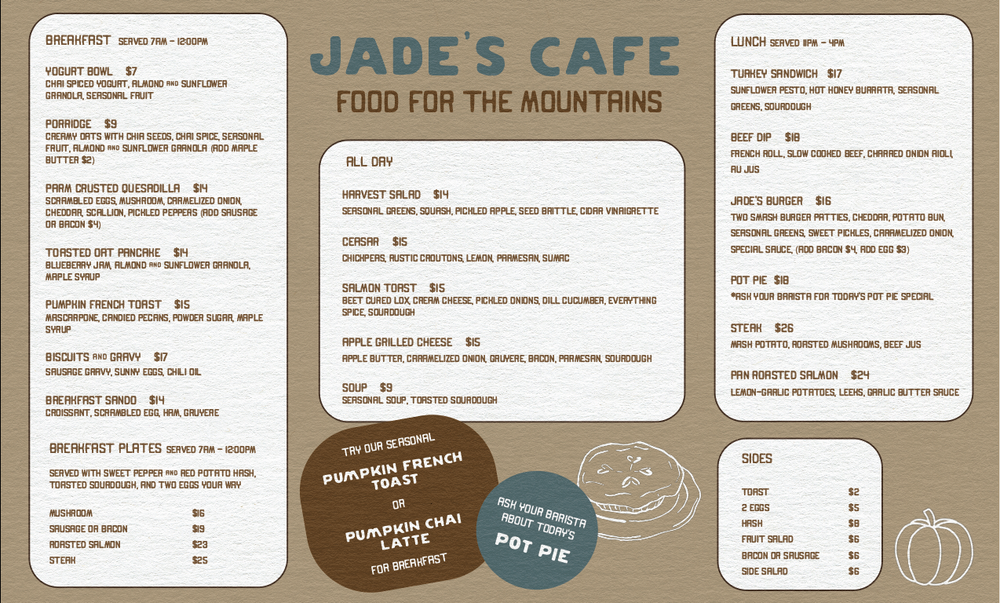 BREAKFAST SERVED 7AM - 12:00PM
YOGURT BOWL $7
CHAI SPICED YOGURT, ALMOND AND SUNFLOWER
GRANOLA, SEASONAL FRUIT
PORRIDGE $9
CREAMY OATS WITH CHIA SEEDS, CHAI SPICE, SEASONAL
FRUIT, ALMOND AND SUNFLOWER GRANOLA (ADD MAPLE
BUTTER $2)
PARM CRUSTED QUESADILLA $14
SCRAMBLED EGGS, MUSHROOM, CARMELIZED ONION,
CHEDDAR, SCALLION, PICKLED PEPPERS (ADD SAUSAGE
OR BACON $4)
TOASTED OAT PANCAKE $14
BLUEBERRY JAM, ALMOND AND SUNFLOWER GRANOLA,
MAPLE SYRUP
PUMPKIN FRENCH TOAST $15
MASCARPONE, CANDIED PECANS, POWDER SUGAR, MAPLE
SYRUP
BISCUITS AND GRAVY $17
SAUSAGE GRAVY, SUNNY EGGS, CHILI OIL
BREAKFAST SANDO $14
CROISSANT, SCRAMBLED EGG, HAM, GRUYERE
BREAKFAST PLATES SERVED 7AM - 12:00PM
SERVED WITH SWEET PEPPER AND RED POTATO HASH,
TOASTED SOURDOUGH, AND TWO EGGS YOUR WAY
MUSHROOM $16
SAUSAGE OR BACON $19
ROASTED SALMON $23
STEAK $25
JADE'S CAFE
FOOD FOR THE MOUNTAINS
ALL DAY
HARVEST SALAD $14
SEASONAL GREENS, SQUASH, PICKLED APPLE, SEED BRITTLE, CIDAR VINAIGRETTE
CEASAR $15
CHICKPEAS, RUSTIC CROUTONS, LEMON, PARMESAN, SUMAC
SALMON TOAST $15
BEET CURED LOX, CREAM CHEESE, PICKLED ONIONS, DILL CUCUMBER, EVERYTHING
SPICE, SOURDOUGH
APPLE GRILLED CHEESE $15
APPLE BUTTER, CARAMELIZED ONION, GRUYERE, BACON, PARMESAN, SOURDOUGH
SOUP $9
SEASONAL SOUP, TOASTED SOURDOUGH
TRY OUR SEASONAL
PUMPKIN FRENCH
TOAST
OR
PUMPKIN CHAI
LATTE
FOR BREAKFAST
ASK YOUR BARISTA
ABOUT TODAY'S
POT PIE
LUNCH SERVED 11PM - 4PM
TURKEY SANDWICH $17
SUNFLOWER PESTO, HOT HONEY BURRATA, SEASONAL
GREENS, SOURDOUGH
BEEF DIP $18
FRENCH ROLL, SLOW COOKED BEEF, CHARRED ONION AIOLI,
AU JUS
JADE'S BURGER $16
TWO SMASH BURGER PATTIES, CHEDDAR, POTATO BUN,
SEASONAL GREENS, SWEET PICKLES, CARAMELIZED ONION,
SPECIAL SAUCE, (ADD BACON $4, ADD EGG $3)
POT PIE $18
*ASK YOUR BARISTA FOR TODAY'S POT PIE SPECIAL
STEAK $26
MASH POTATO, ROASTED MUSHROOMS, BEEF JUS
PAN ROASTED SALMON $24
LEMON-GARLIC POTATOES, LEEKS, GARLIC BUTTER SAUCE
SIDES
TOAST $2
2 EGGS $5
HASH $8
FRUIT SALAD $6
BACON OR SAUSAGE $6
SIDE SALAD $6